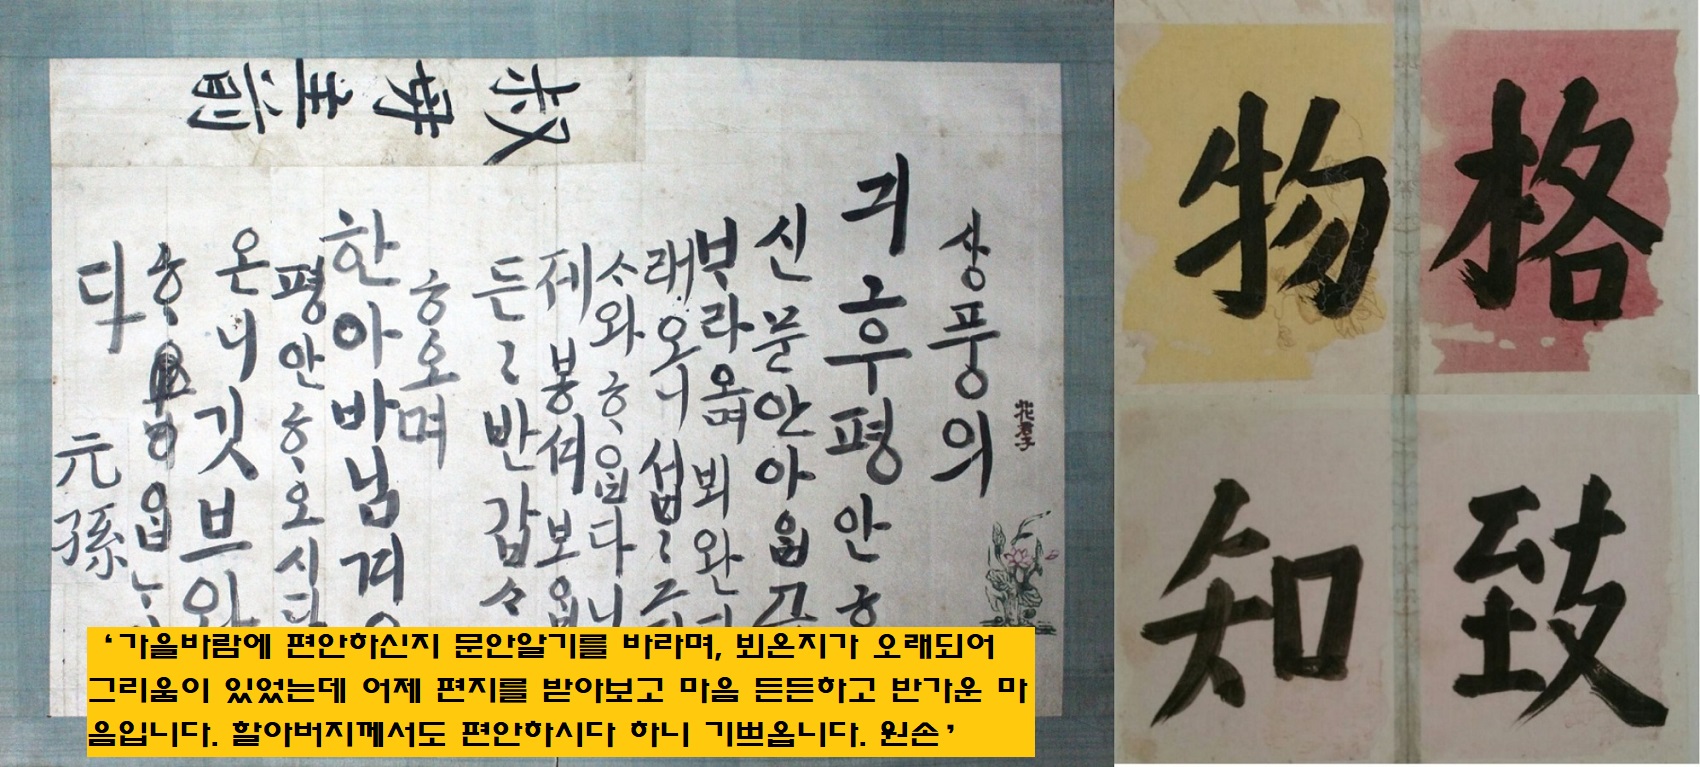 叔母主前
상풍의
긔후평안ᄒᆞ
신문안아ᄋᆞᆸ고
ᄇᆞ라ᄋᆞᆸ며 뵈완디
래오니 섭〻 그
ᄉᆞ와 ᄒᆞᄋᆞᆸ다니
제 봉셔 보ᄋᆞᆸ
든〻 반갑ᄉᆞ
ᄒᆞ오며
한아바님겨
평안ᄒᆞ오시다
온니 깃브와
ᄒᆞᄋᆞᆸᄂᆞ
다 元孫
‘가을바람에 편안하신지 문안알기를 바라며, 뵈온지가 오래되어
그리움이 있었는데 어제 편지를 받아보고 마음 든든하고 반가운 마
음입니다. 할아버지께서도 편안하시다 하니 기쁘옵니다. 원손’
格物
致知